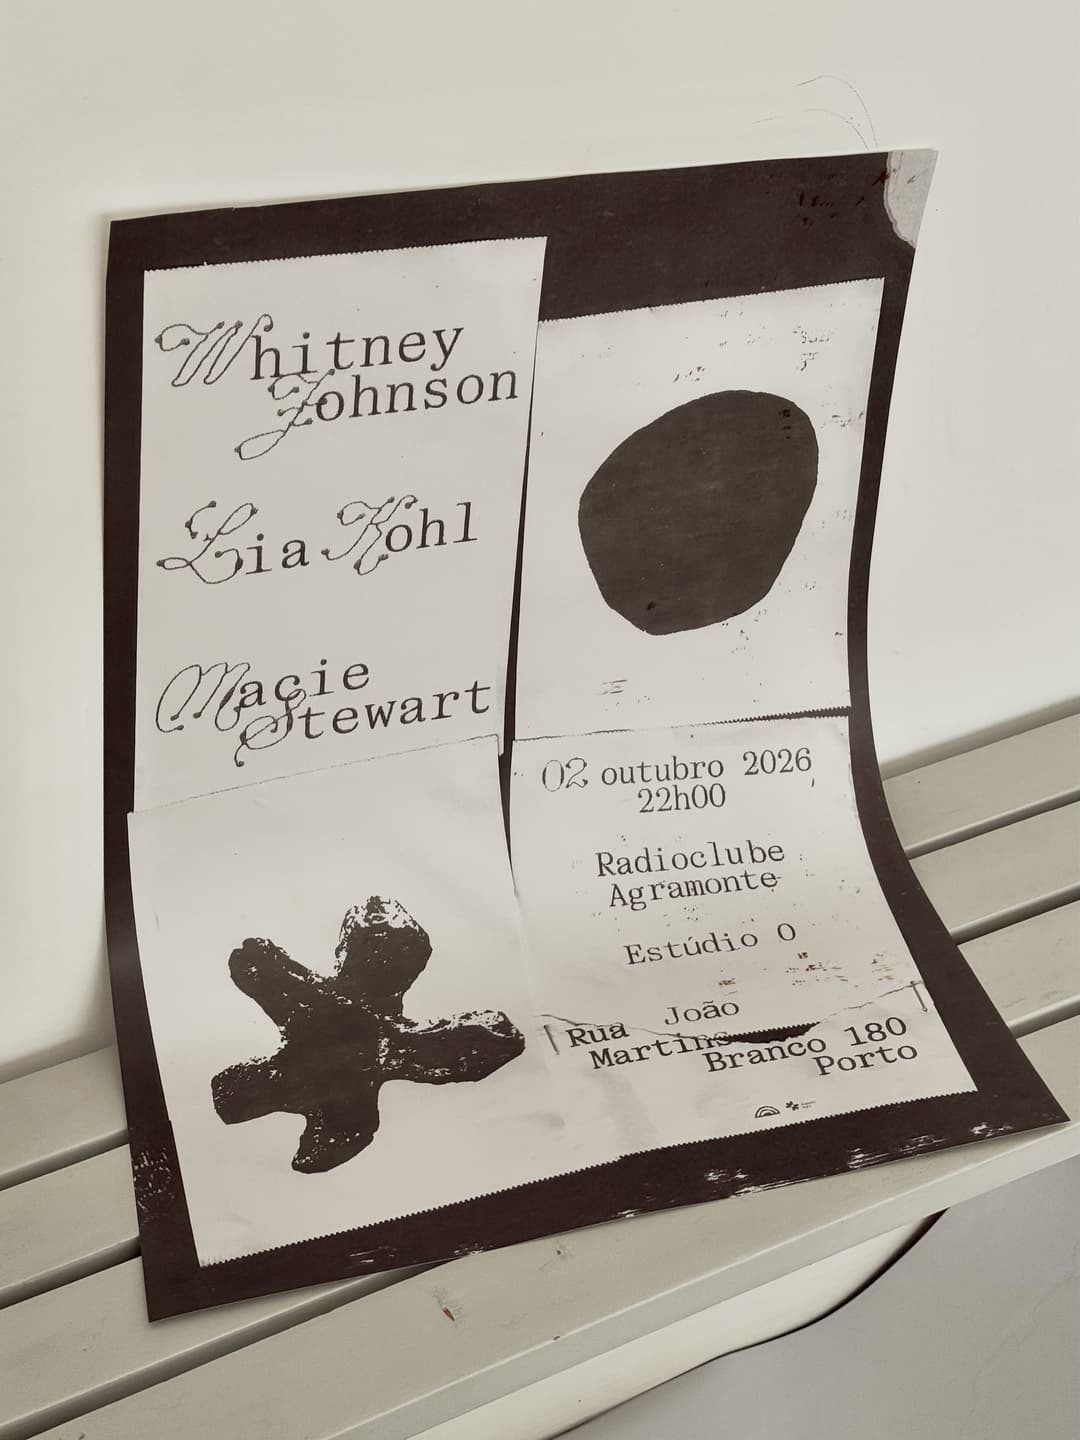 Whitney
Johnson
Lia Kohl
Macie
Stewart
02 outubro 2026
22h00
Radioclube
Agramonte
Estúdio 0
Rua João
Martins
Branco 180
Porto